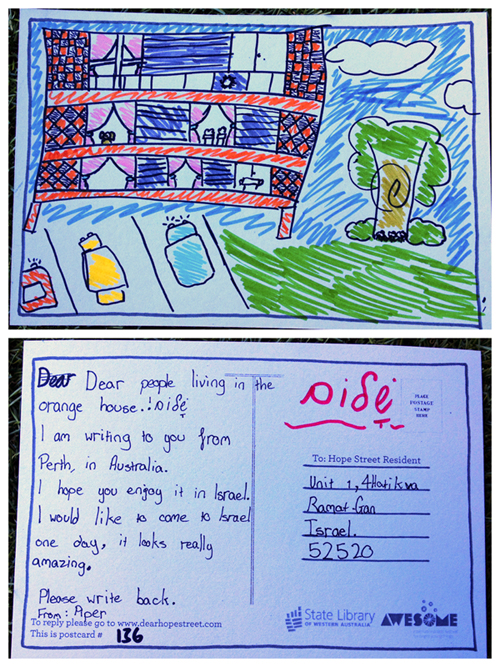 Dear Dear people living in the
orange house.! שָׁלום
I am writing to you from
Perth, in Australia.
I hope you enjoy it in Israel.
I would like to come to Israel
one day, it looks really
amazing.
Please write back.
From: Piper
To reply please go to www.dearhopestreet.com
This is postcard # 136
שָׁלום
PLACE
POSTAGE
STAMP
HERE
To: Hope Street Resident
Unit 1, 4 Hatikva
Ramat-Gan
Israel.
52520
State Library
OF WESTERN AUSTRALIA
AWESOME